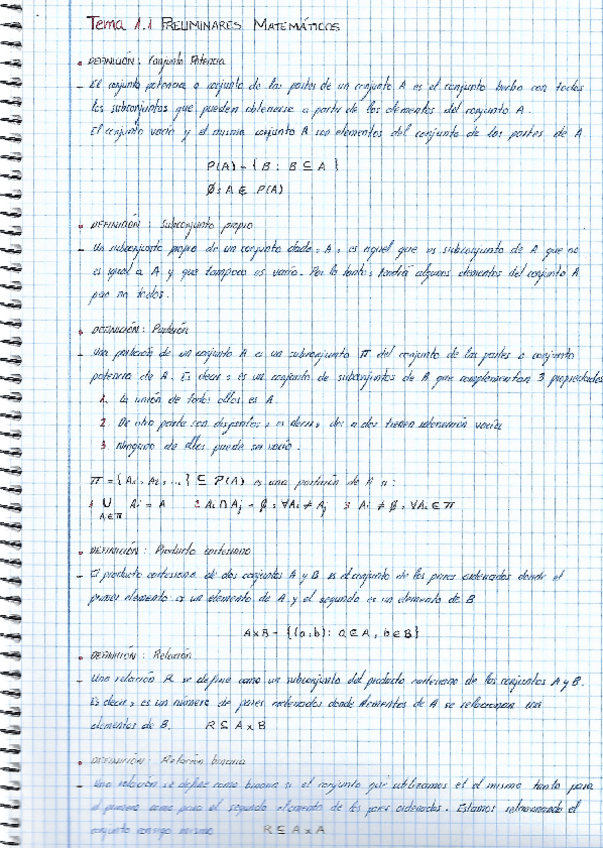 Tema 1.1 PRELIMINARES MATEMÁTICOS
• DEFINICIÓN: Conjunto Potencia
- El conjunto potencia o conjunto de las partes de un conjunto A es el conjunto hecho con todos
los subconjuntos que pueden obtenerse a partir de los elementos del conjunto A.
El conjunto vacío y el mismo conjunto A son elementos del conjunto de las partes de A
P(A) = { B : B ⊆ A }
∅, A ∈ P(A)
• DEFINICIÓN: Subconjunto propio
- Un subconjunto propio de un conjunto dado, A, es aquel que es subconjunto de A que no
es igual a A y que tampoco es vacío. Por lo tanto, tendrá algunos elementos del conjunto A
pero no todos.
• DEFINICIÓN: Partición
- Una partición de un conjunto A es un subconjunto Π del conjunto de las partes o conjunto
potencia de A. Es decir, es un conjunto de subconjuntos de A que complementan 3 propiedades
1. La unión de todos ellos es A
2. De otra parte son disjuntos, es decir, dos a dos tienen intersección vacía
3. Ninguno de ellos puede ser vacío.
Π = { A₁, A₂, ... } ⊆ P(A) es una partición de A si:
1 ∪ Aᵢ = A 2 Aᵢ ∩ Aⱼ = ∅, ∀Aᵢ ≠ Aⱼ 3 Aᵢ ≠ ∅, ∀Aᵢ ∈ Π
Aᵢ∈Π
• DEFINICIÓN: Producto cartesiano
- El producto cartesiano de dos conjuntos A y B es el conjunto de los pares ordenados donde el
primer elemento es un elemento de A y el segundo es un elemento de B
A×B = {(a,b): a ∈ A, b ∈ B}
• DEFINICIÓN: Relación
- Una relación R se define como un subconjunto del producto cartesiano de los conjuntos A y B.
Es decir, es un número de pares ordenados donde elementos de A se relacionan con
elementos de B. R ⊆ A × B
• DEFINICIÓN: Relación binaria
- Una relación se define como binaria si el conjunto que utilizamos es el mismo tanto para
el primero como para el segundo elemento de los pares ordenados. Estamos relacionando el
conjunto consigo mismo R ⊆ A × A